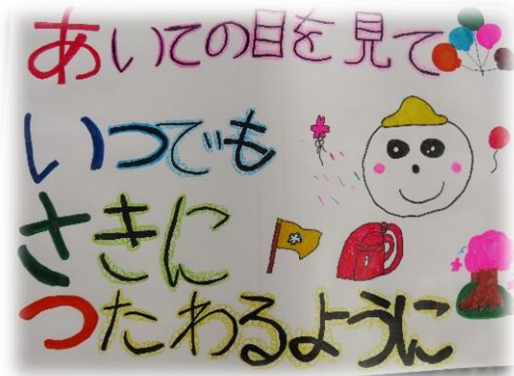 あいての目を見て
いつでも
さきに
つたわるように